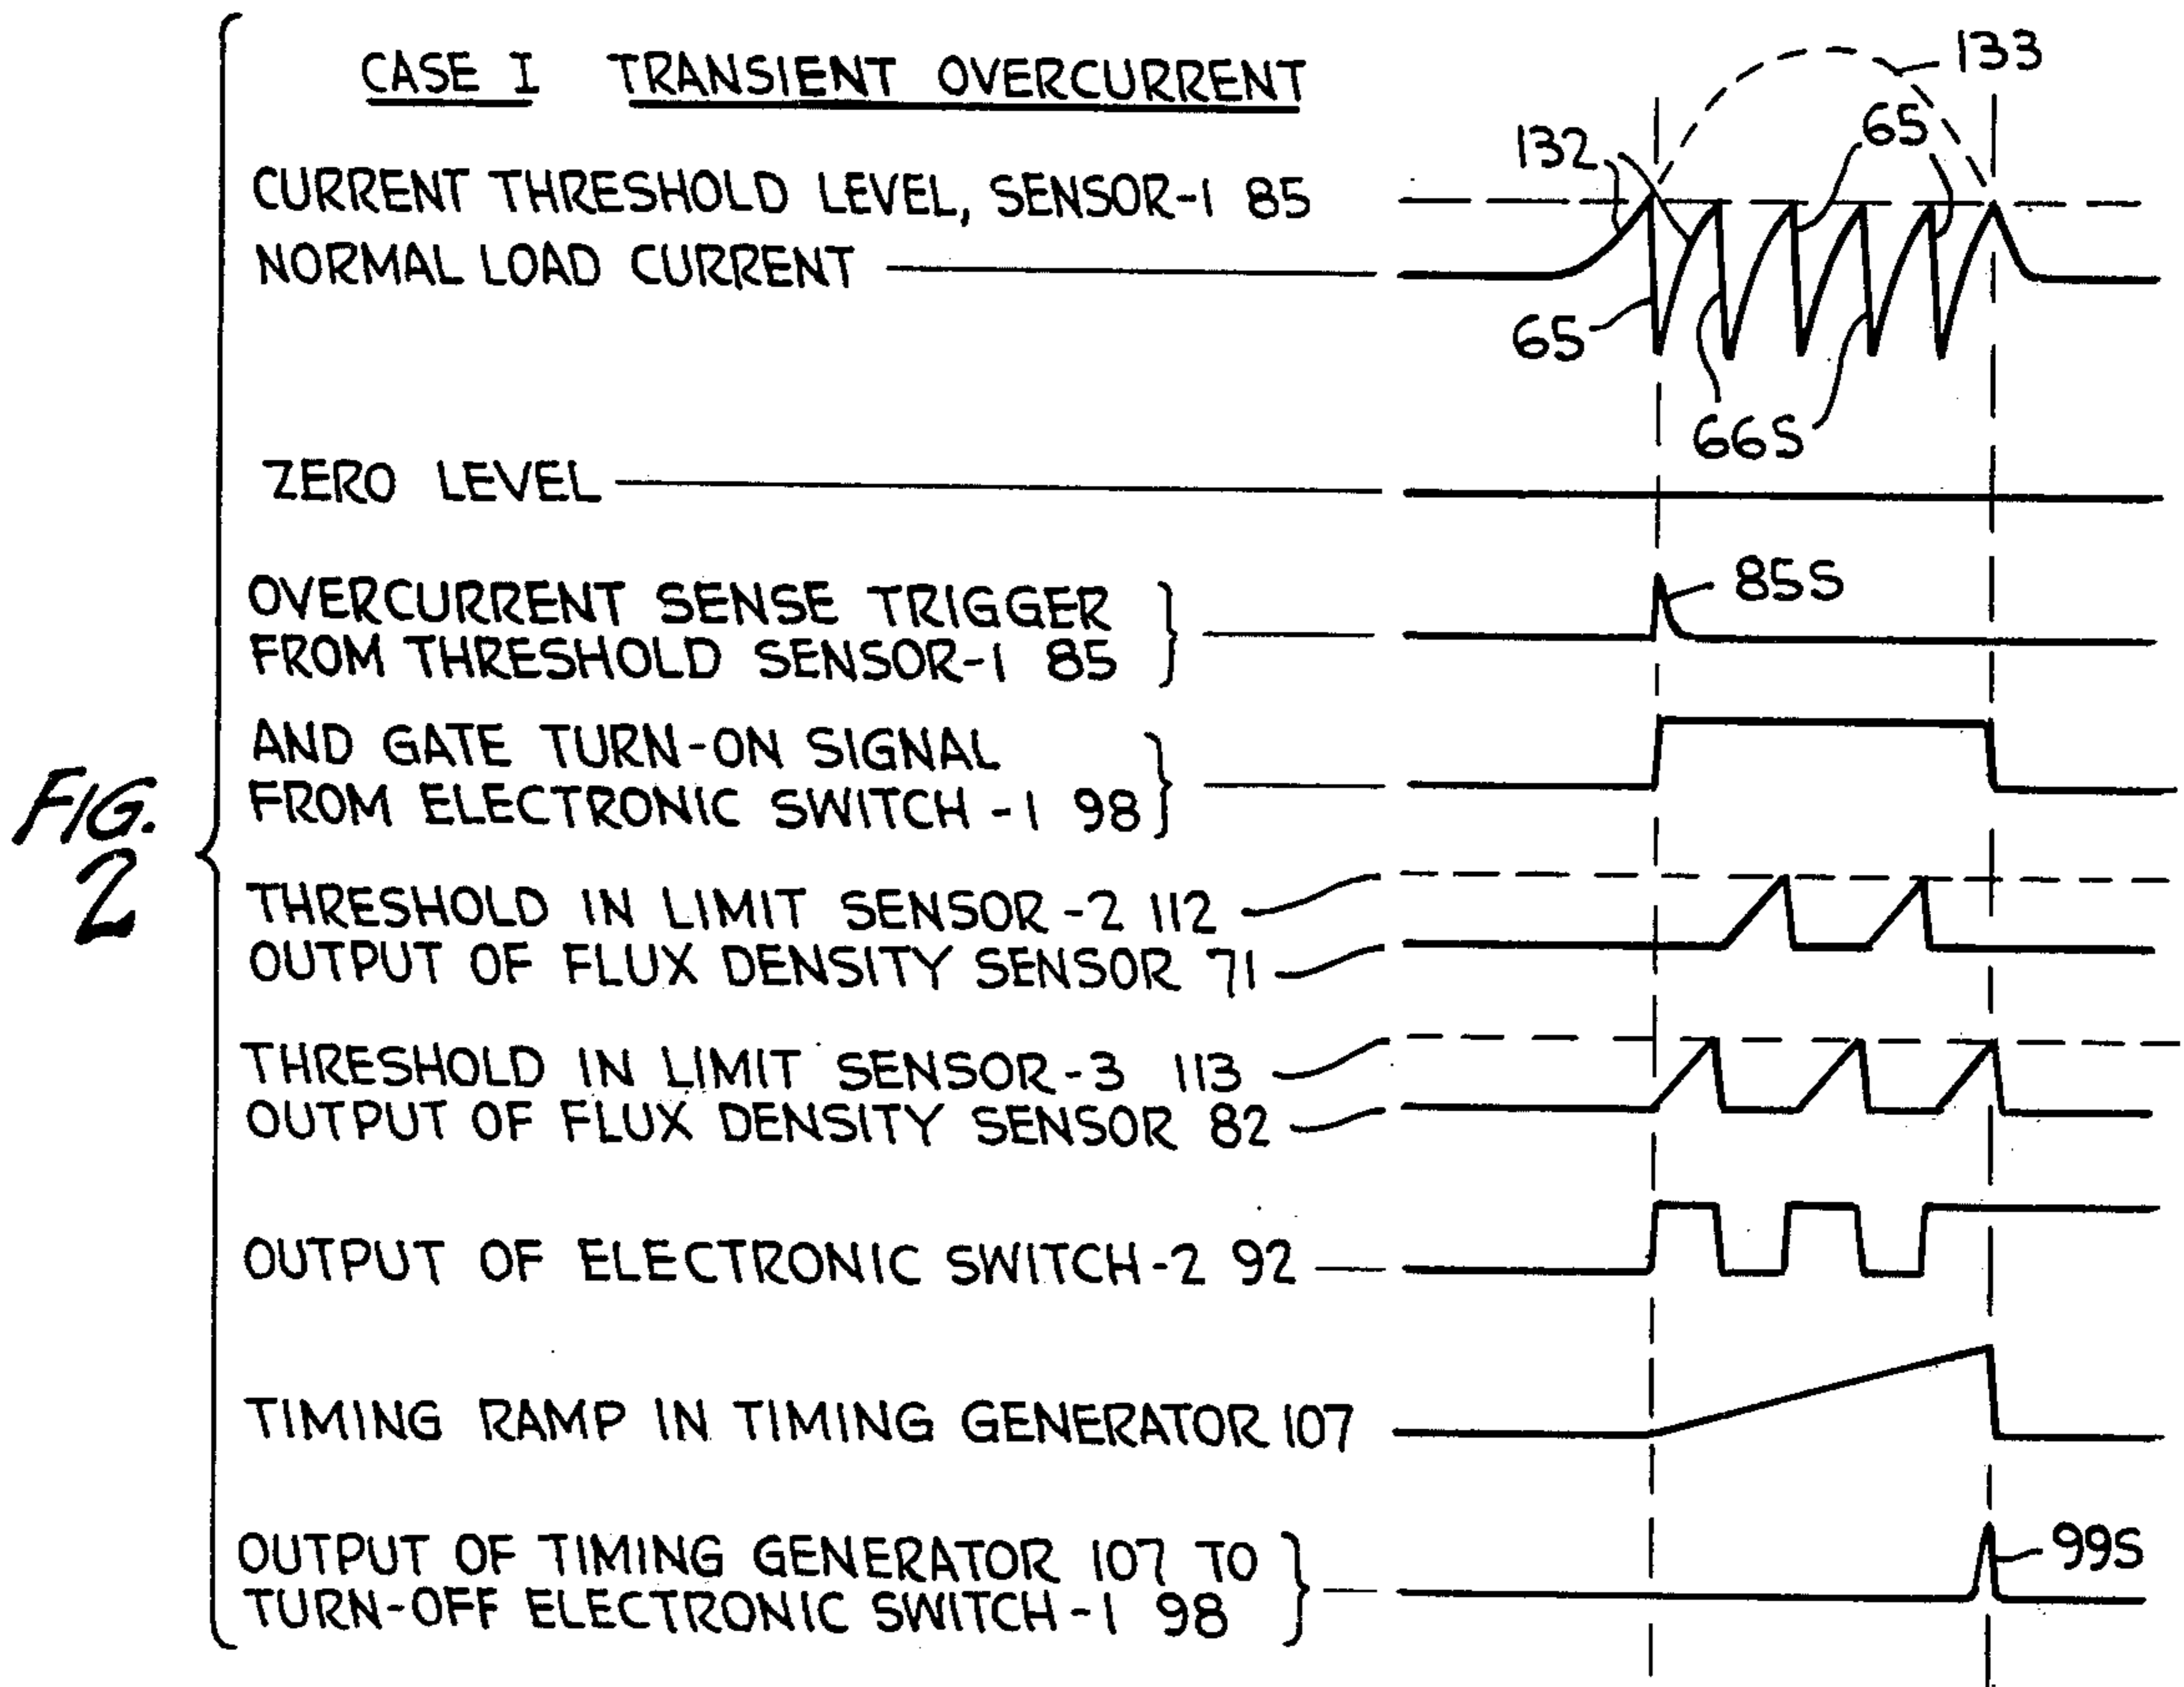 CASE I TRANSIENT OVERCURRENT
133
65
132
CURRENT THRESHOLD LEVEL, SENSOR-1 85
NORMAL LOAD CURRENT
65
66S
ZERO LEVEL
85S
OVERCURRENT SENSE TRIGGER
FROM THRESHOLD SENSOR-1 85
AND GATE TURN-ON SIGNAL
FROM ELECTRONIC SWITCH-1 98
FIG.
2
THRESHOLD IN LIMIT SENSOR-2 112
OUTPUT OF FLUX DENSITY SENSOR 71
THRESHOLD IN LIMIT SENSOR-3 113
OUTPUT OF FLUX DENSITY SENSOR 82
OUTPUT OF ELECTRONIC SWITCH-2 92
TIMING RAMP IN TIMING GENERATOR 107
OUTPUT OF TIMING GENERATOR 107 TO
TURN-OFF ELECTRONIC SWITCH-1 98
99S